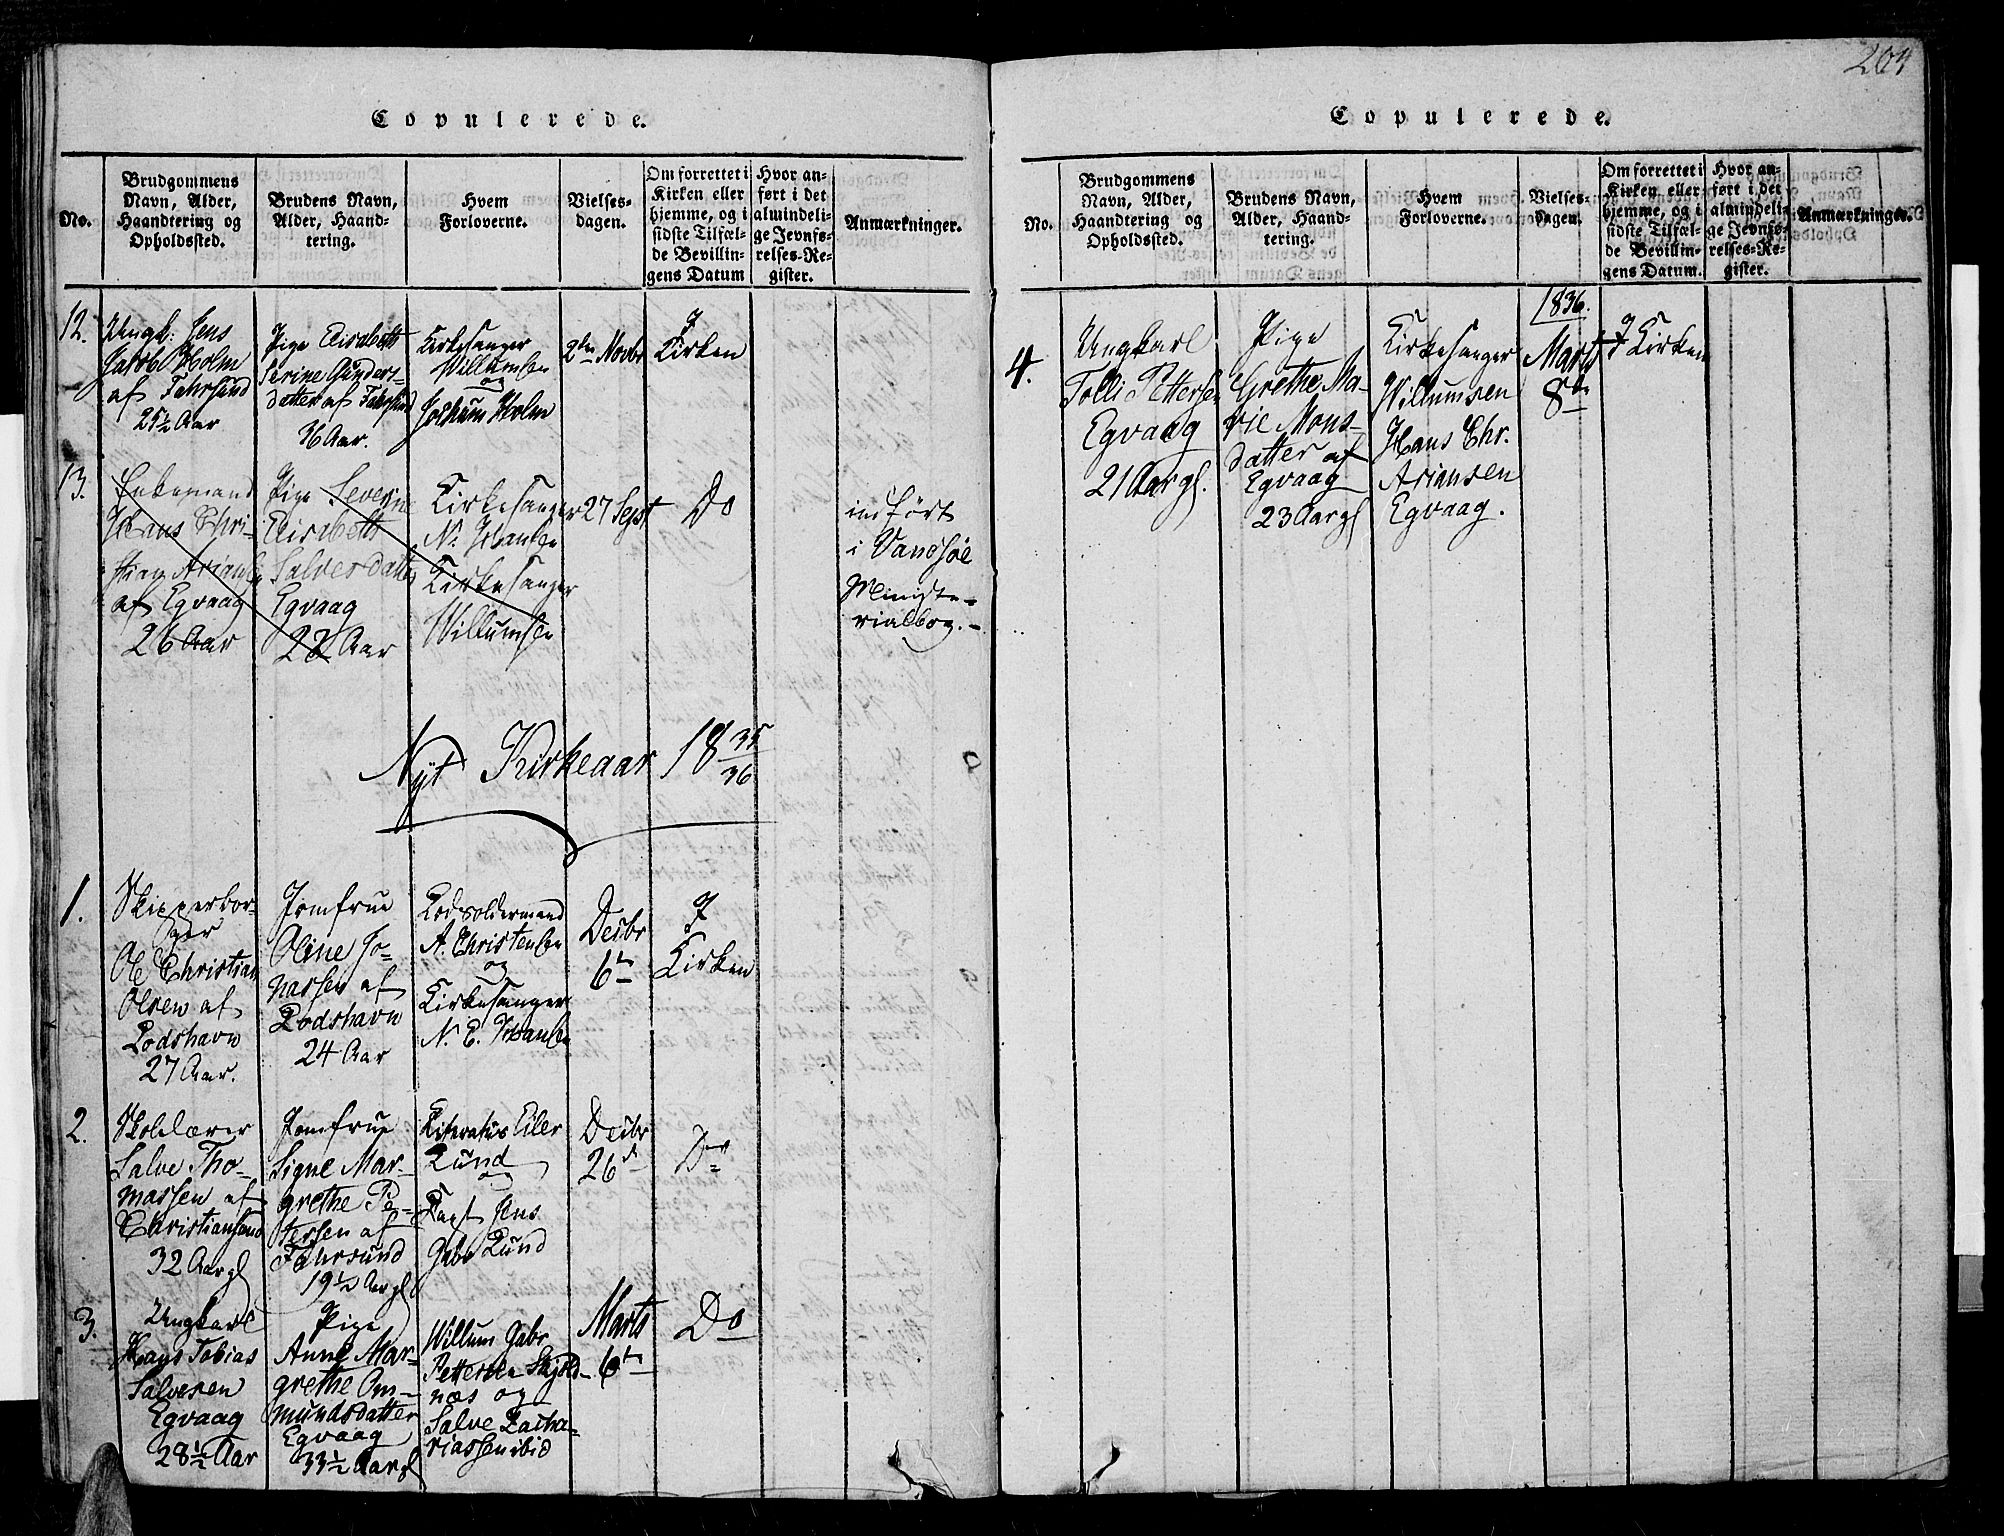 Copulerede.
No.
Brudgommens
Navn, Alder,
Haandtering og
Opholdssted.
Brudens Navn,
Alder, Haand-
tering.
Hvem
Forloverne.
Vielses-
dagen.
Om forrettet i
Kirken eller
hjemme, og i
sidste Tilfæl-
de Bevillin-
gens Datum
Hvor an-
ført i det
almindeli-
ge Jevnfø-
relses-Re-
gister.
Anmærkninger.
12.
Ungk: Jens
Jacob Holm
af Fahrsund
25½ Aar
Pige Elisabeth
Serine Gunders-
datter af Fahrsund
36 Aar.
Kirkesanger
Willumsen
og
Jochum Holm
2den Novbr
I
Kirken
13.
Enkemand
Hans Chri-
stian Ariansen
af Egvaag
26 Aar
Pige Severine
Elisabeth
Salvesdatter
Egvaag
22 Aar
Kirkesanger
N. Hansen
Kirkesanger
Willumsen
27 Sept
Do
indført
i Vandsøe
Ministe-
rialbog.-
Nyt Kirkeaar 18 35/36
1.
Skipperbor-
ger
Ole Christian
Olsen af
Lodshavn
27 Aar.
Jomfrue
Oline Jo-
nassen af
Lodshavn
24 Aar
Lodsoldermand
A. Christensen
og
Kirkesanger
N. E. Hansen
Decbr
6te
I
Kirken
2.
Skolelærer
Salve Tho-
massen af
Christiansand
32 Aar gl
Jomfrue
Signe Mar-
grethe Pe-
tersen af
Fahrsund
19½ Aar gl
Literatus Eiler
Lund
og
Jens
Gabr Lund
Decbr
26d
Do
3.
Ungkarl
Hans Tobias
Salvesen
Egvaag
28½ Aar
Pige
Anne Mar-
grethe Om-
mundsdatter
Egvaag
33½ Aar gl
Willum Gabr
Pettersen Skjold-
næs og
Salve Zacha-
riassen ibid
Marts
6te
Do
204
Copulerede.
No.
Brudgommens
Navn, Alder,
Haandtering og
Opholdssted.
Brudens Navn,
Alder, Haand-
tering.
Hvem
Forloverne.
Vielses-
dagen.
Om forrettet i
Kirken eller
hjemme, og i
sidste Tilfæl-
de Bevillin-
gens Datum.
Hvor an-
ført i det
almindeli-
ge Jevnfø-
relses-Re-
gister.
Anmærkninger.
4.
Ungkarl
Tolli Pettersen
Egvaag
21 Aar gl.
Pige
Grethe Ma-
rie Mons-
datter af
Egvaag
23 Aar gl
Kirkesanger
Willumsen
Hans Chr.
Ariansen
Egvaag.
1836.
Marts
8de
I Kirken